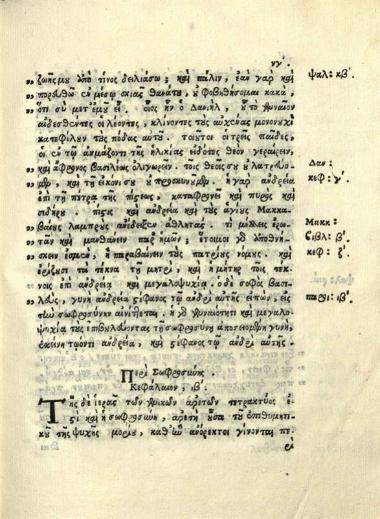 νγ΄.
ζωῆς μου ἀπὸ τίνος δειλιάσω; καὶ πάλιν, ἐὰν γὰρ καὶ
πορευθῶ ἐν μέσῳ σκιᾶς θανάτου, οὐ φοβηθήσομαι κακὰ,
ὅτι σὺ μετ' ἐμοῦ εἶ. οἷος ἦν ὁ Δανιήλ, οὗ τὸ γενναῖον
αἰδεσθέντες οἱ λέοντες, κλίνοντες τοὺς αὐχένας μονονουχὶ
κατεφίλουν τοὺς πόδας αὐτοῦ. τοιοῦτοι οἱ τρεῖς παῖδες,
οἱ ἐν τῷ ἀκμάζοντι τῆς ἡλικίας εἰδότες θεὸν γεραίρειν,
καὶ ἄφρονος βασιλέως ὀλιγωρεῖν. τοῖς θεοῖς σου οὐ λατρεύο-
μεν, καὶ τῇ εἰκόνι σου οὐ προσκυνοῦμεν. ἡ γὰρ ἀνδρεία
ἐπὶ τῇ πέτρᾳ τῆς πίστεως, καταφρονεῖ καὶ πυρὸς καὶ
σιδήρου. πίστις καὶ ἀνδρεία καὶ τοὺς ἁγίους Μακκα-
βαίους λαμπροὺς ἀνέδειξεν ἀθλητάς. τί μέλλεις ἐρω-
τᾶν καὶ μανθάνειν παρ' ἡμῶν; ἕτοιμοι γὰρ ἀποθνή-
σκειν ἐσμὲν, ἢ παραβαίνειν τοὺς πατρῴους νόμους. καὶ
ὁρίζουσι τὰ τέκνα τῇ μητρὶ, καὶ ἡ μήτηρ τοῖς τέκ-
νοις ἐπὶ ἀνδρείᾳ καὶ μεγαλοψυχίᾳ. ὁ δὲ σοφὸς βασι-
λεὺς, γυνὴ ἀνδρεία στέφανος τῷ ἀνδρὶ αὐτῆς εἰπὼν, εἰς
τὴν σωφροσύνην αἰνίττεται. ἡ γὰρ γενναιότητι καὶ μεγαλο-
ψυχίᾳ τοὺς ἐπιβουλεύοντας τῇ σωφροσύνῃ ἀποσεισαμένη γυνὴ,
ἐκείνη τῷ ὄντι ἀνδρεία, καὶ στέφανος τῷ ἀνδρὶ αὐτῆς.
Περὶ Σωφροσύνης.
Κεφάλαιον, ιβ΄.
Τῆς δὲ ἱερᾶς τῶν γενικῶν ἀρετῶν τετρακτύος ἐ-
στὶ καὶ ἡ σωφροσύνη, ἀρετὴ οὖσα τοῦ ἐπιθυμητι-
κοῦ τῆς ψυχῆς μορίου, καθ' ἣν ἀνόρεκτοι γίνονται πε-
ρὶ
ψαλ: κβ΄.
Δαν:
κεφ: γ΄.
Μακκ:
βιβλ: β΄.
κεφ: ζ΄.
παροι: ιβ΄.